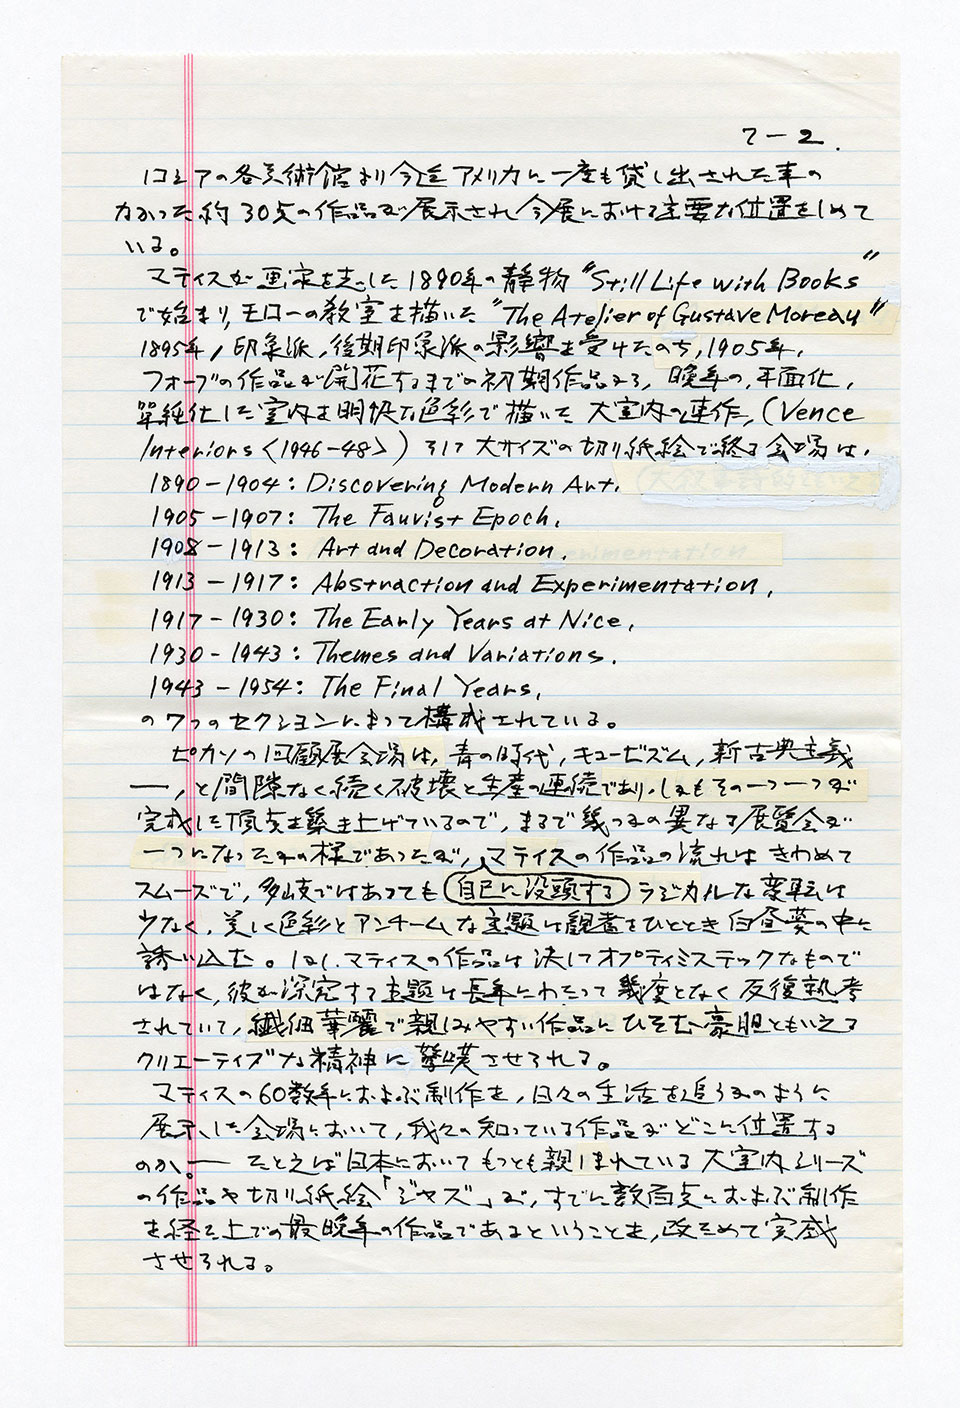 7-2.
ロシアの各美術館より今迄アメリカに一度も貸し出された事の
なかった約30点の作品が展示され今展における主要な位置をしめて
いる。
マティスが画家を志した1890年の静物“Still Life with Books”
で始まり,モローの教室を描いた“The Atelier of Gustave Moreau”
1895年,印象派,後期印象派の影響を受けたのち,1905年,
フォーブの作品が開花するまでの初期作品から,晩年の,平面化,
単純化した室内を明快な色彩で描いた大室内の連作,(Vence
Interiors<1946-48>)そして大サイズの切り紙絵で終る会場は,
1890-1904: Discovering Modern Art.
1905-1907: The Fauvist Epoch,
1908-1913: Art and Decoration.
1913-1917: Abstraction and Experimentation,
1917-1930: The Early Years at Nice,
1930-1943: Themes and Variations.
1943-1954: The Final Years,
の7つのセクションによって構成されている。
ピカソの回顧展会場は,青の時代,キュービズム,新古典主義
—,と間隙なく続く破壊と生産の連続であり,しかもその一つ一つが
完成した頂点を築き上げているので,まるで幾つもの異なる展覧会が
一つになったかの様であったが,マティスの作品の流れはきわめて
スムーズで,多岐ではあっても自己に没頭するラジカルな変転は
少なく,美しく色彩とアンチームな主題は観者をひととき白昼夢の中に
誘い込む。しかし,マティスの作品は決してオプティミステックなもので
はなく,彼が深究する主題は長年にわたって幾度となく反復熟考
されていて,繊細華麗で親しみやすい作品にひそむ豪胆ともいえる
クリエーティブな精神に驚嘆させられる。
マティスの60数年におよぶ制作を,日々の生活を追うかのように
展示した会場において,我々の知っている作品がどこに位置する
のか。—たとえば日本においてもっとも親しまれている大室内シリーズ
の作品や切り紙絵「ジャズ」が,すでに数百点におよぶ制作
を経た上での最晩年の作品であるということを,改ためて実感
させられる。